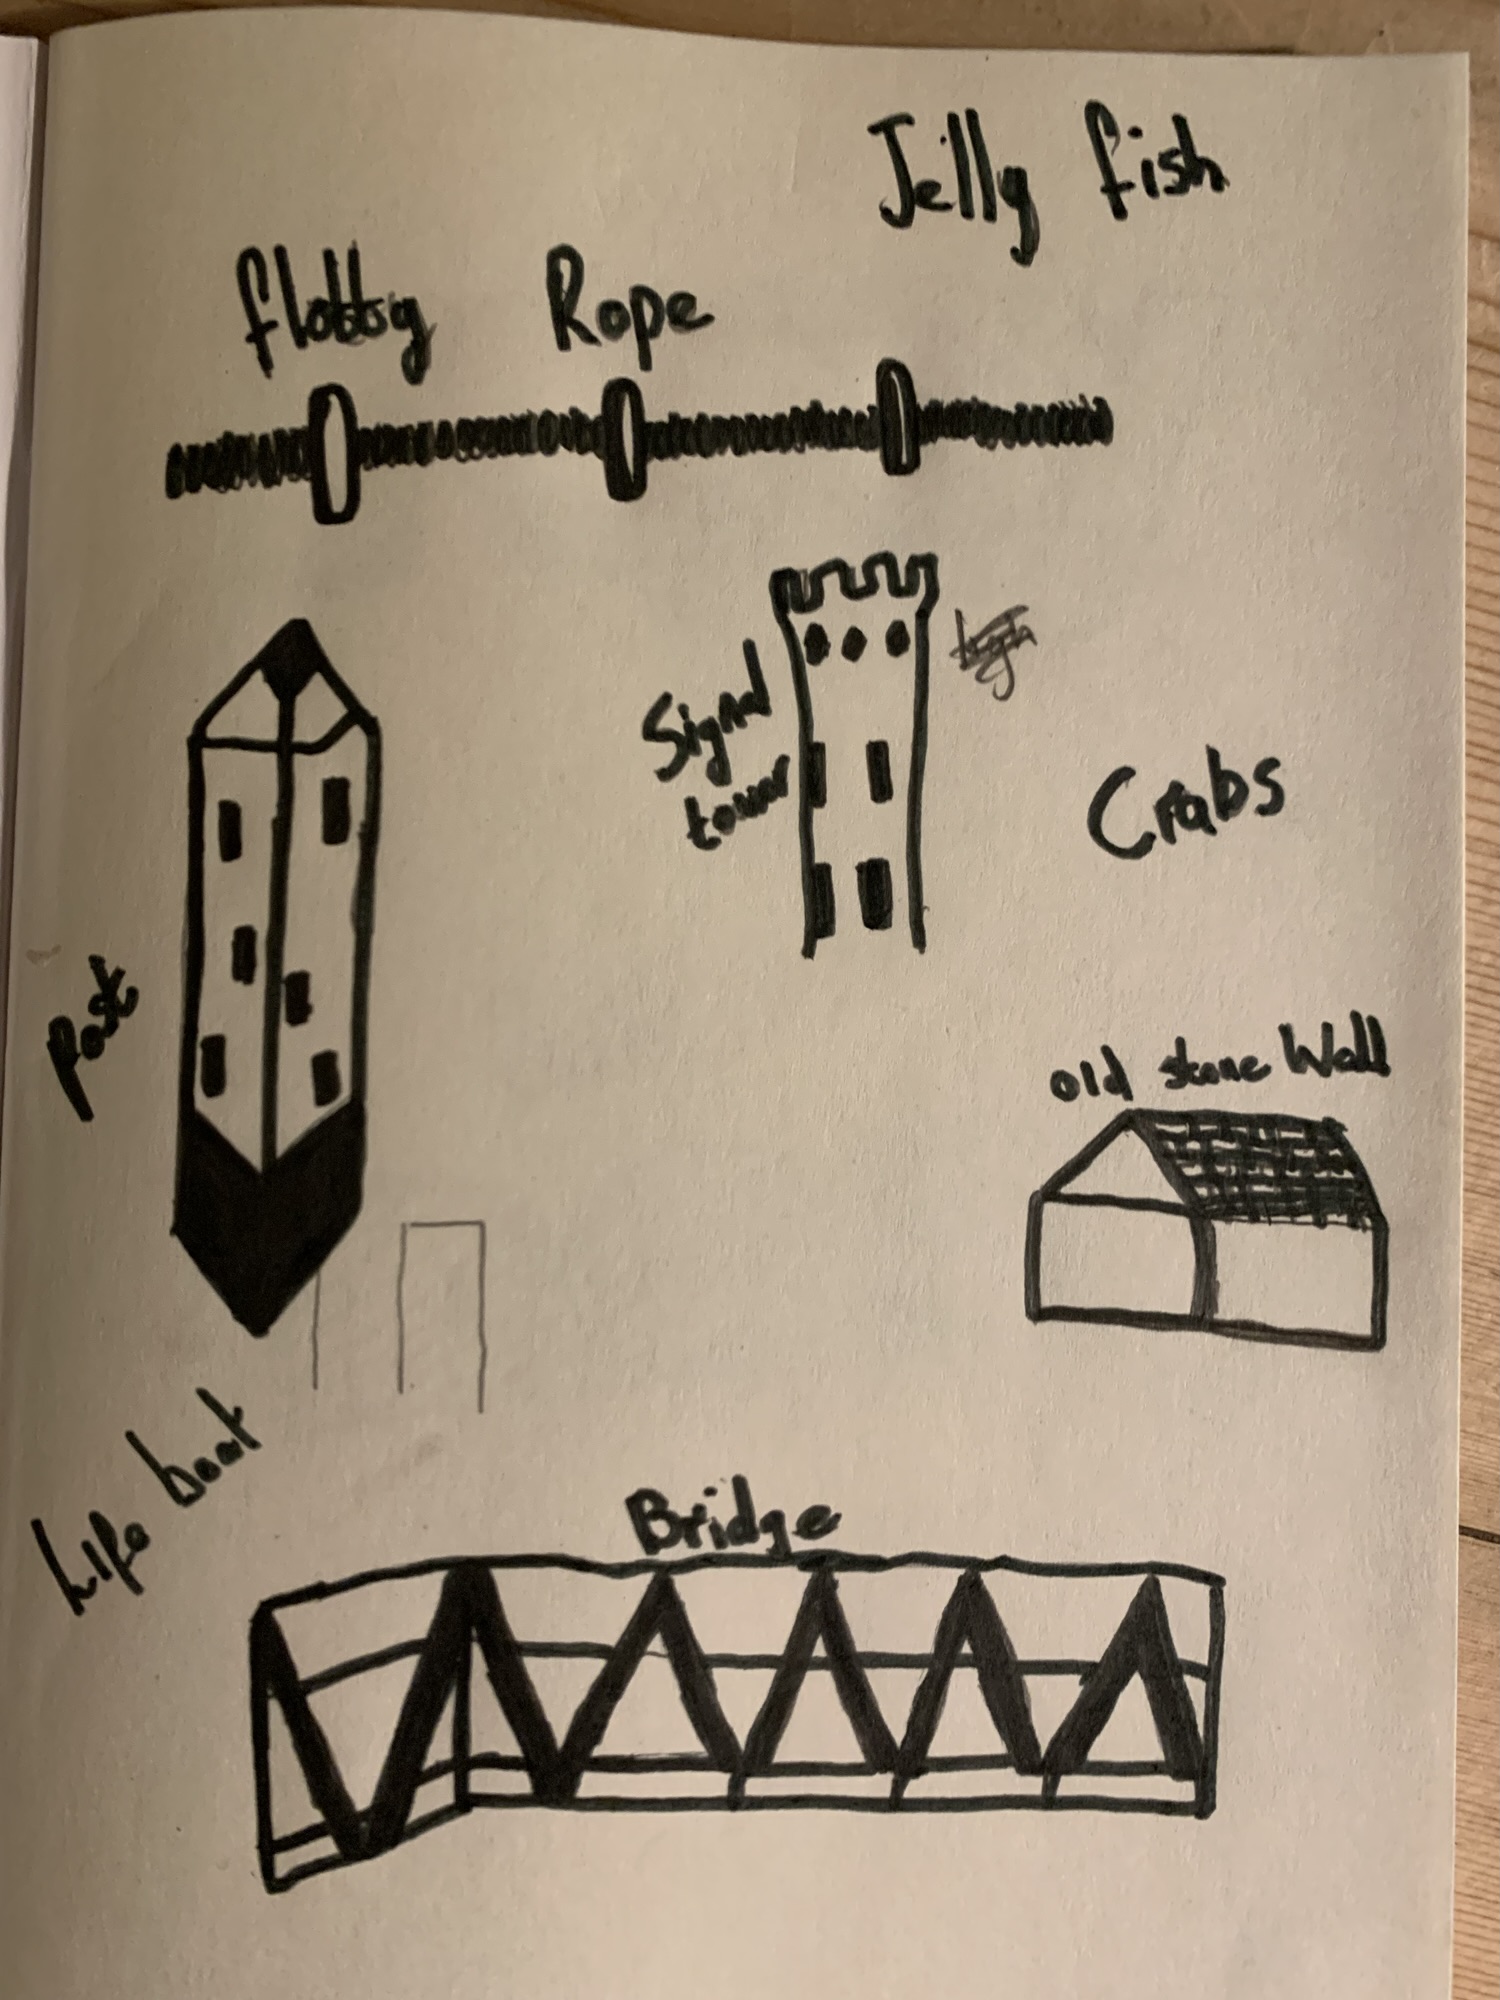 Jelly fish
Rope
Signal
tower
Crabs
Post
old stone Wall
Life boat
Bridge